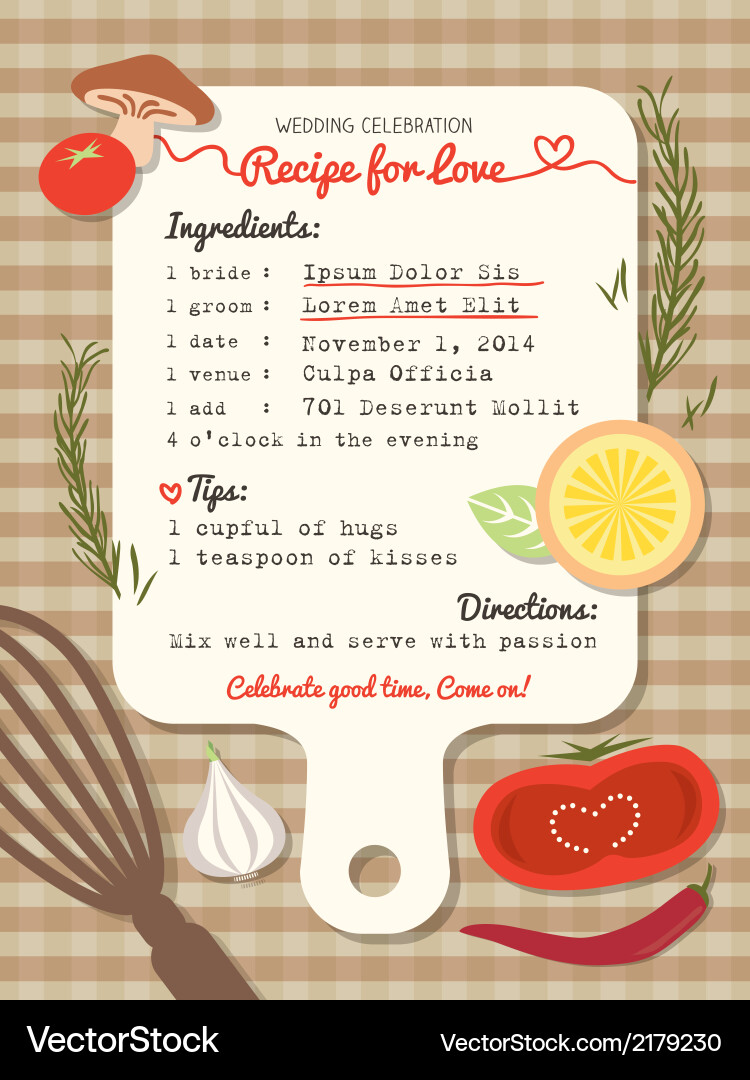 WEDDING CELEBRATION
Recipe for Love
Ingredients:
1 bride : Ipsum Dolor Sis
1 groom : Lorem Amet Elit
1 date : November 1, 2014
1 venue : Culpa Officia
1 add : 701 Deserunt Mollit
4 o'clock in the evening
Tips:
1 cupful of hugs
1 teaspoon of kisses
Directions:
Mix well and serve with passion
Celebrate good time, Come on!
VectorStock® VectorStock.com/2179230